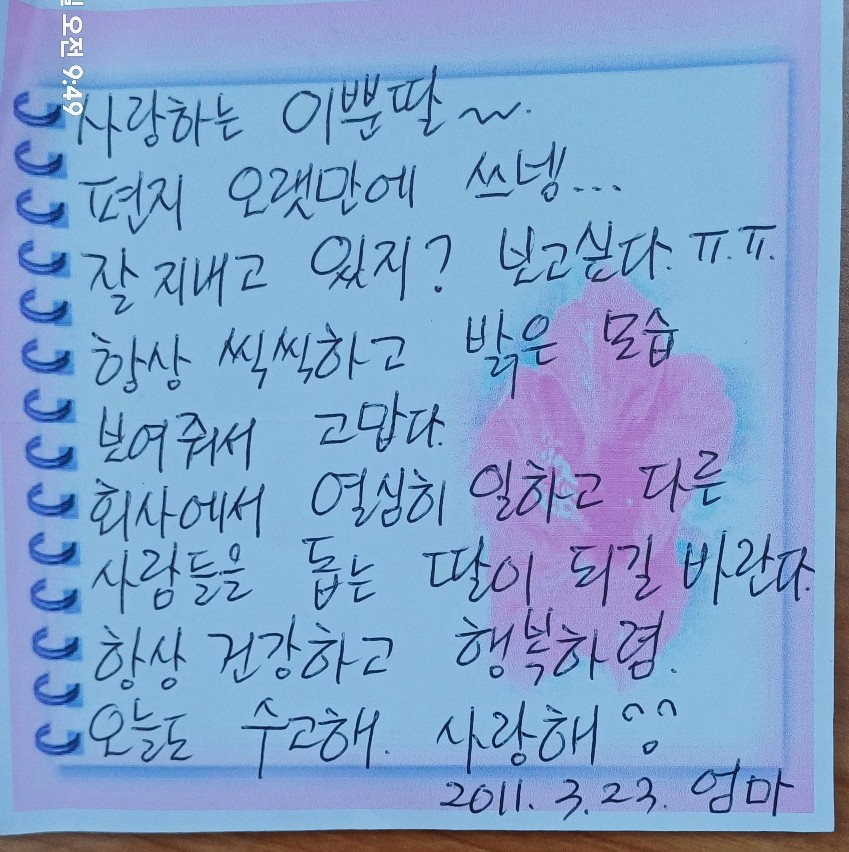 사랑하는 이뿐딸~.
편지 오랫만에 쓰넹...
잘 지내고 있지? 보고싶다. ㅠ.ㅠ.
항상 씩씩하고 밝은 모습
보여줘서 고맙다.
회사에서 열심히 일하고 다른
사람들을 돕는 딸이 되길 바란다.
항상 건강하고 행복하렴.
오늘도 수고해. 사랑해 ^^
2011. 3. 23. 엄마
오전 9:49